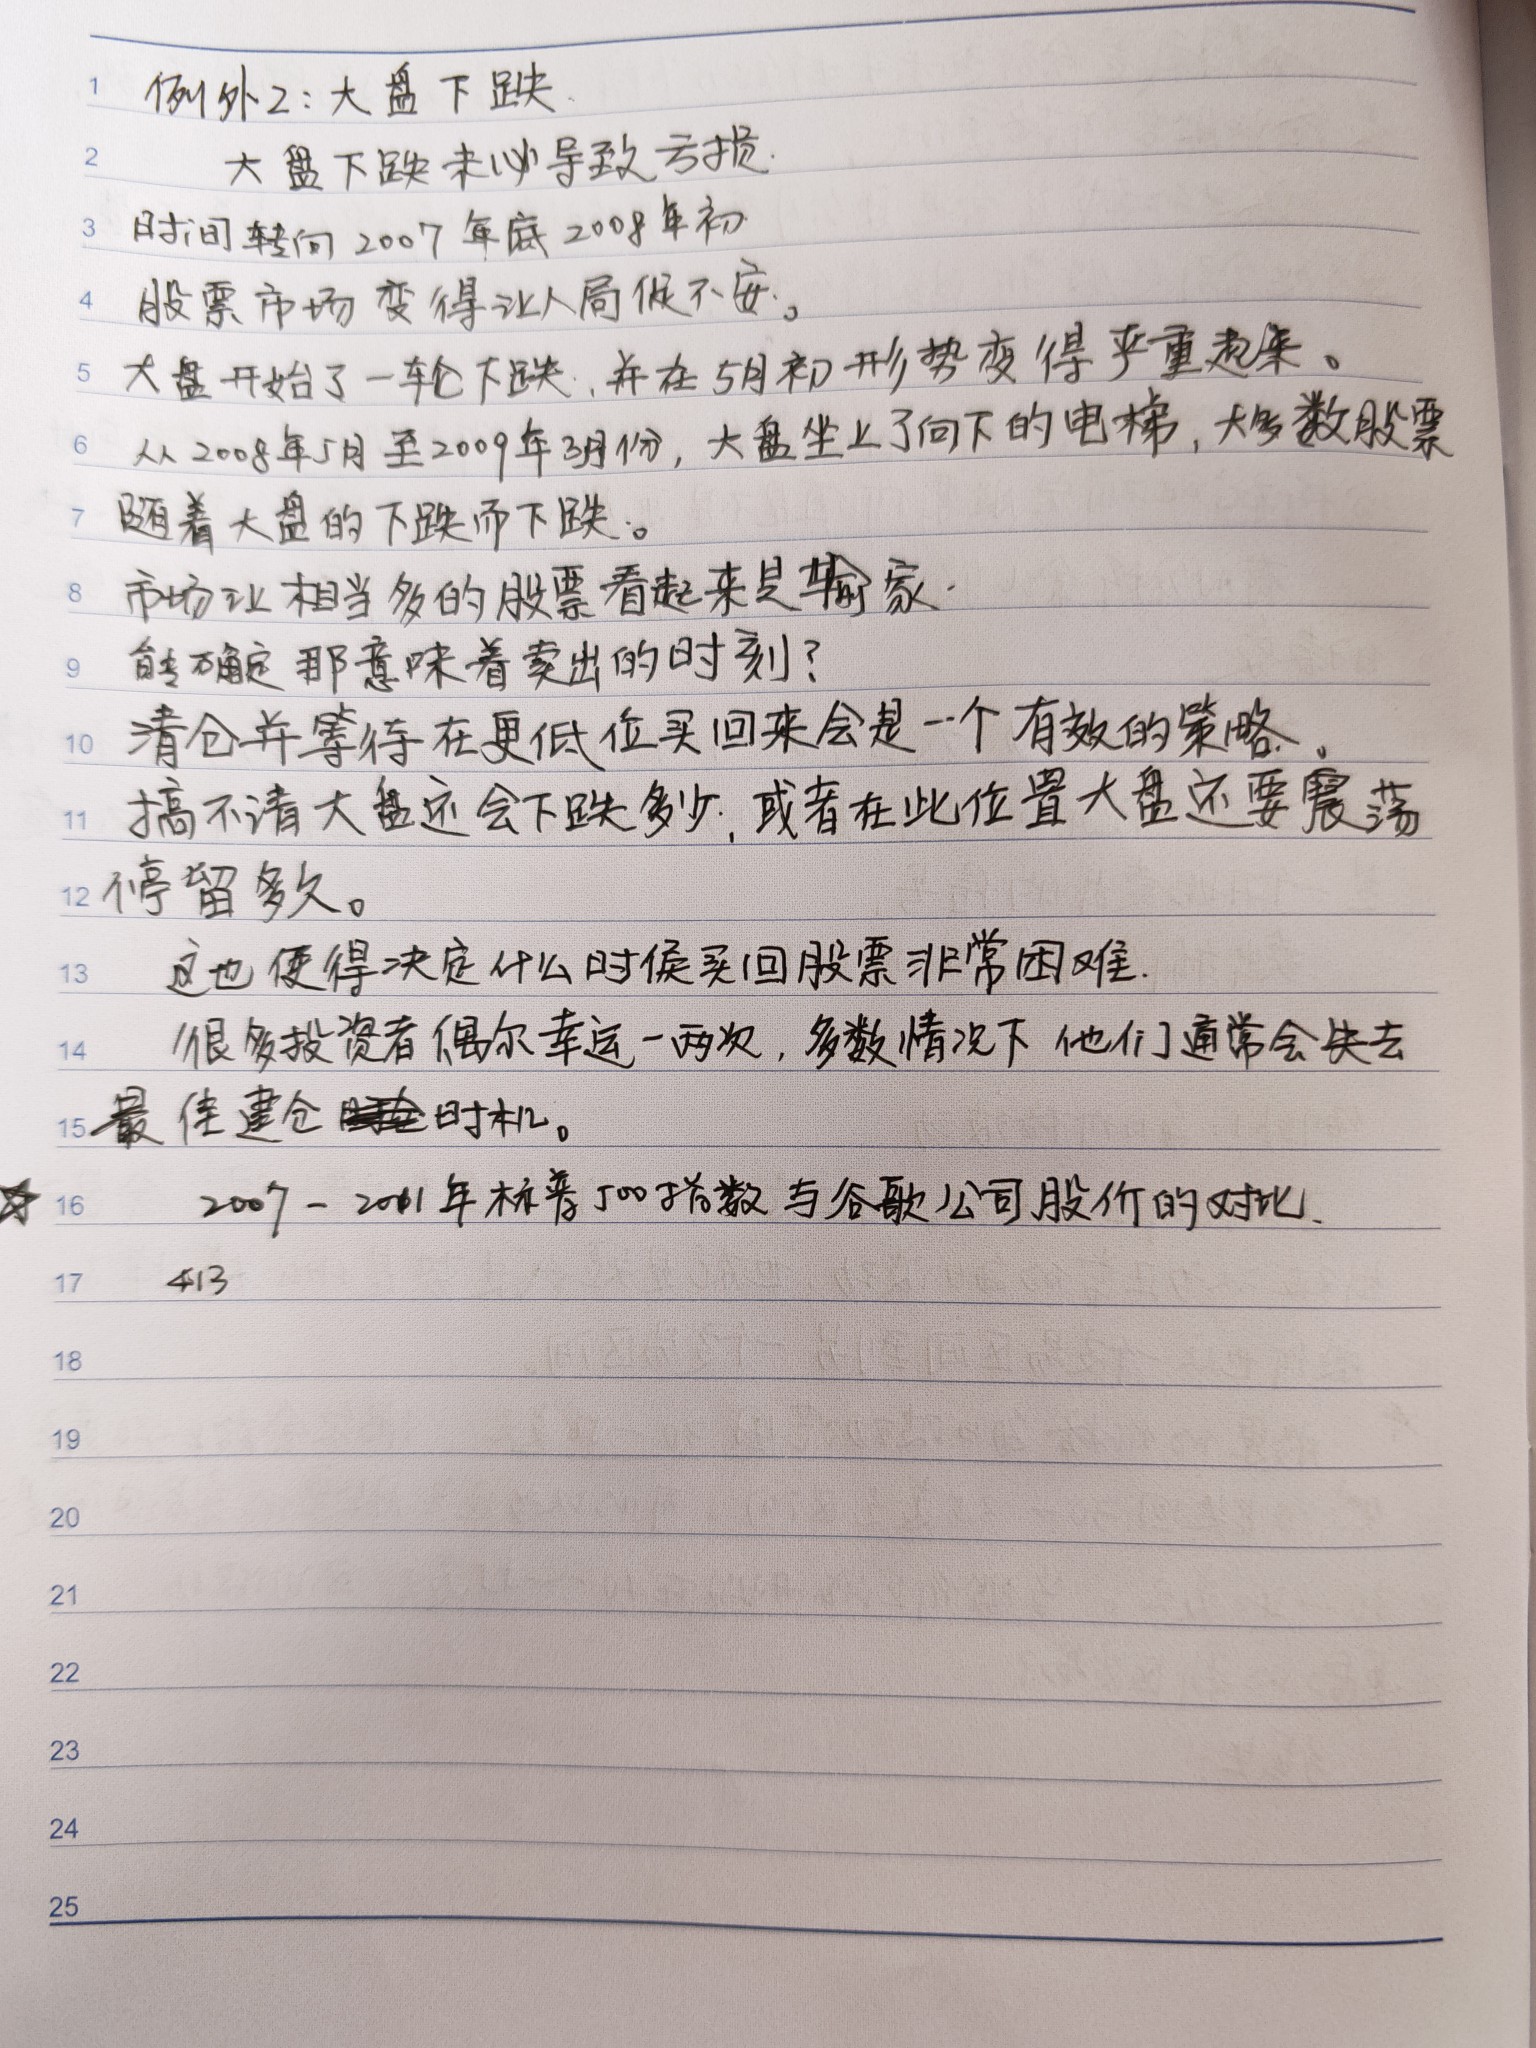 1 例外2：大盘下跌.
2 大盘下跌未必导致亏损.
3 时间转向2007年底2008年初
4 股票市场变得让人局促不安。
5 大盘开始了一轮下跌，并在5月初形势变得严重起来。
6 从2008年5月至2009年3月份，大盘坐上了向下的电梯，大多数股票
7 随着大盘的下跌而下跌。
8 市场让相当多的股票看起来是输家.
9 能确定那意味着卖出的时刻？
10 清仓并等待在更低位买回来会是一个有效的策略。
11 搞不清大盘还会下跌多少，或者在此位置大盘还要震荡
12 停留多久。
13 这也使得决定什么时候买回股票非常困难.
14 很多投资者偶尔幸运一两次，多数情况下他们通常会失去
15 最佳建仓时机。
☆ 16 2007-2011年标普500指数与谷歌公司股价的对比.
17 413
18
19
20
21
22
23
24
25